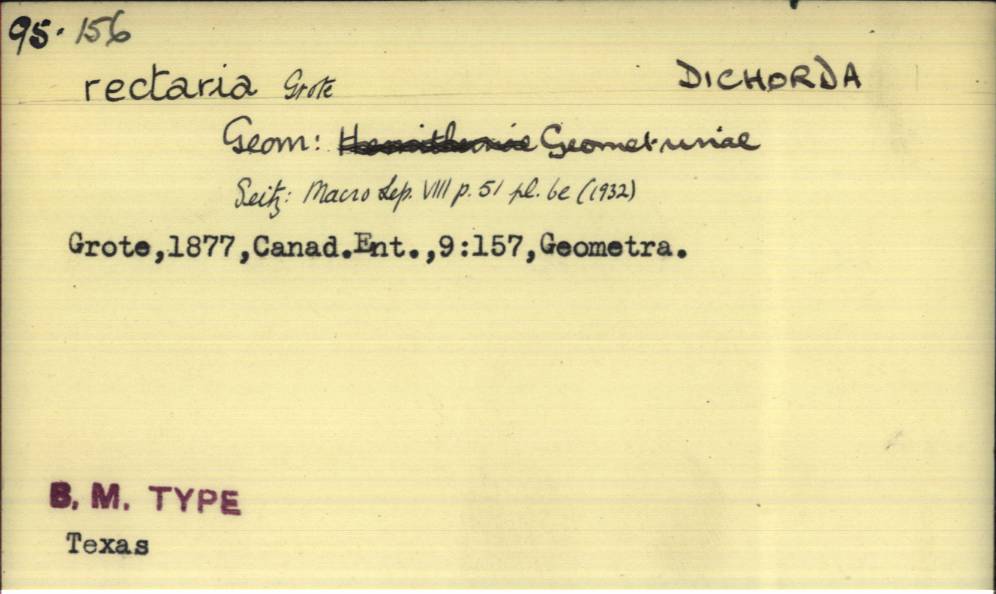 95. 156
rectaria Grote DICHORDA
Geom: Hemitheinae Geometrinae
Seitz: Macro Lep. VIII p. 51 pl. 6e (1932)
Grote,1877,Canad.Ent.,9:157,Geometra.
B. M. TYPE
Texas